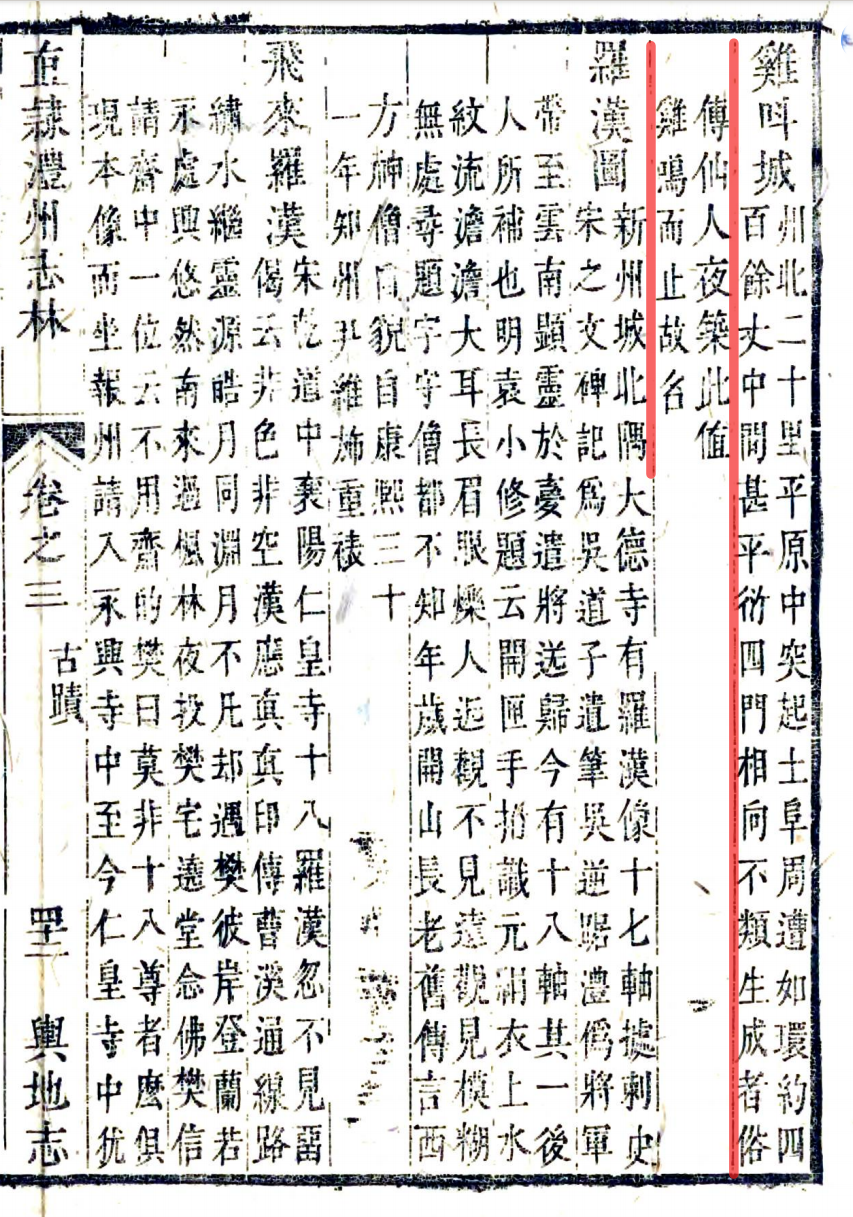 雞呌城 州北二十里平原中突起土阜周遭如環約四
百餘丈中間甚平衍四門相向不類生成者俗
傳仙人夜築此值
雞鳴而止故名
羅漢圖 新州城北隅大德寺有羅漢像十七軸據刺史
宋之文碑記爲吳道子遺筆吳逆踞澧僞將軍
帶至雲南顯靈於憂遣將送歸今有十八軸其一後
人所補也明袁小修題云開匣手搯識元絹衣上水
紋流澹澹大耳長眉眼爍人近觀不見遠觀見模糊
無處尋題字字僧都不知年歲開山長老舊傳言西
方神僧自貌自康熙三十
一年知州尹維旆重裱
飛來羅漢 宋乾道中襄陽仁皇寺十八羅漢忽不見畱
偈云非色非空漢應真真印傳曹溪通線路
繡水繼靈源皓月同淵月不凡却遇樊彼岸登蘭若
永處與悠然南來過楓林夜投樊宅遶堂念佛樊信
請齋中一位云不用齋的樊曰莫非十八尊者麽俱
現本像而坐報州請入永興寺中至今仁皇寺中犹
直隸澧州志林 卷之三 古蹟 四十二 輿地志